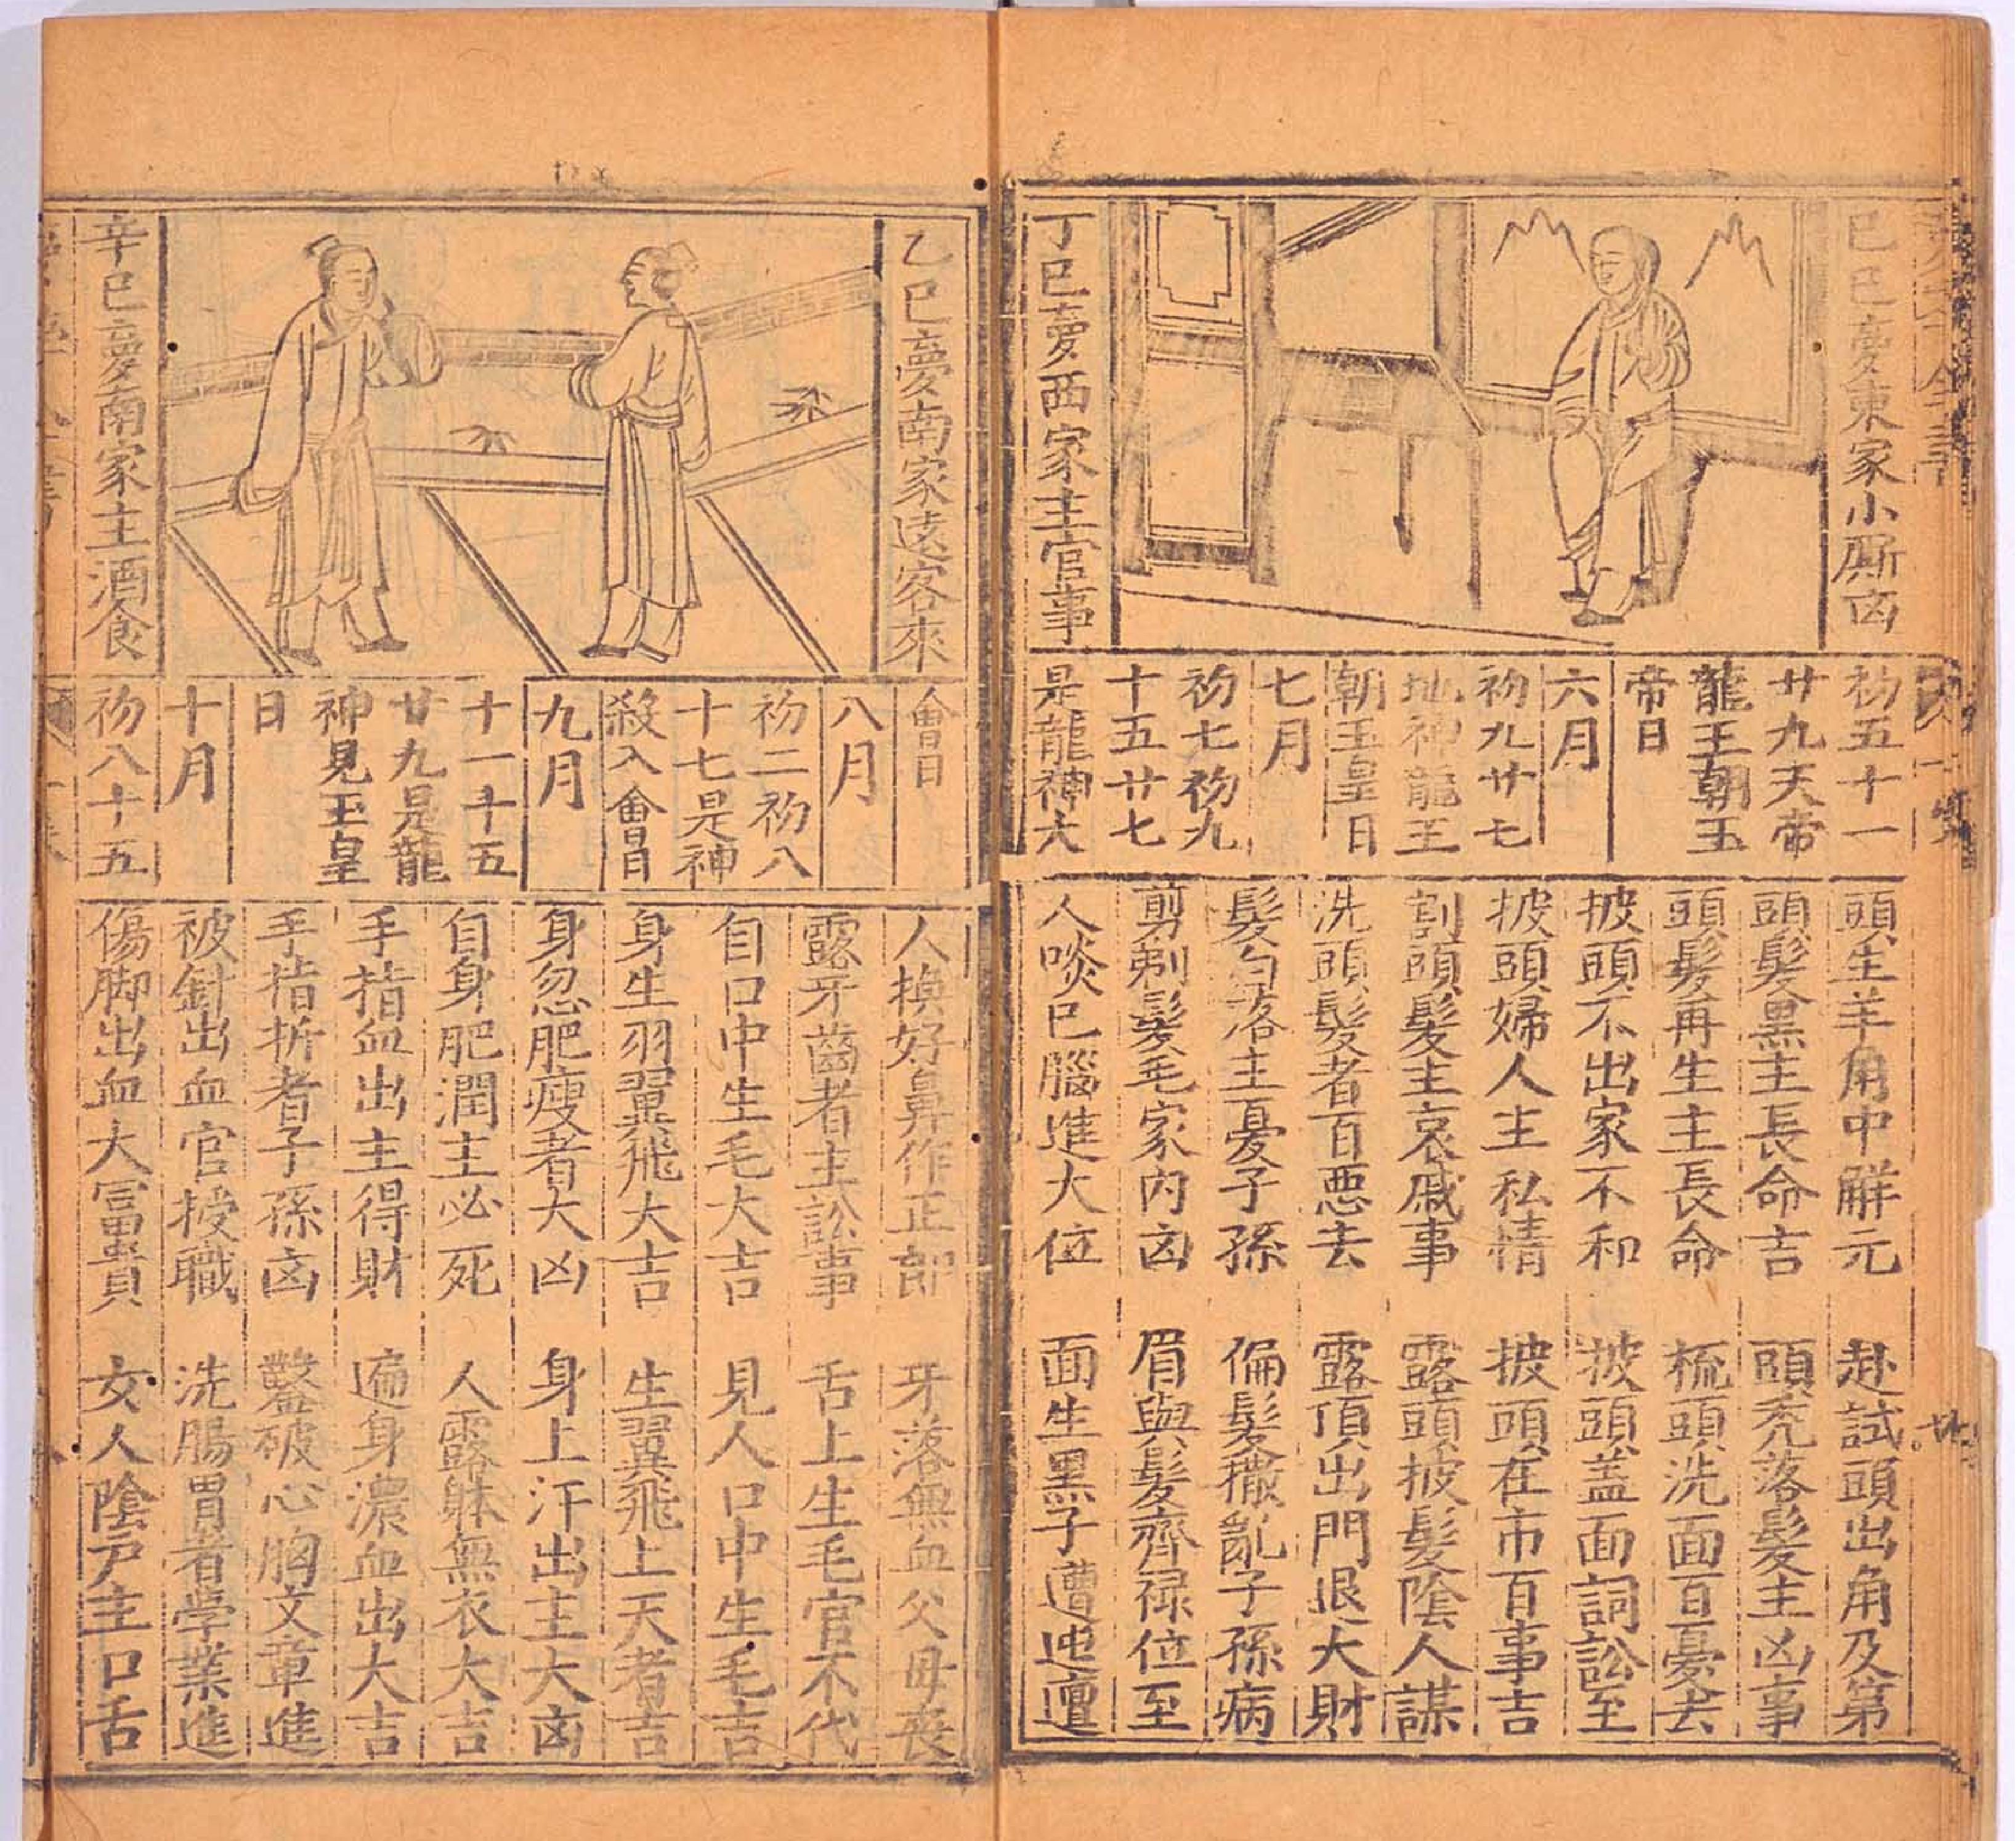 己巳夢東家小厮凶
丁巳夢西家主官事
初五十一
廿九天帝
龍王朝玉
帝日
六月
初九廿七
地神龍王
朝玉皇日
七月
初七初九
十五廿七
是龍神大
頭生羊角中觧元
頭髮黑主長命吉
頭髮再生主長命
披頭不出家不和
披頭婦人主私情
割頭髮主哀戚事
洗頭髮者百惡去
髮自落主憂子孫
剪剃髮毛家内凶
人啖巳腦進大位
赴試頭出角及第
頭秃落髮主凶事
梳頭洗面百憂去
披頭盖面詞訟至
披頭在市百事吉
露頭披髮陰人謀
露頂出門退大財
偏髮撒亂子孫病
眉與髮齊禄位至
面生黑子遭迍邅
乙巳夢南家遠客來
辛巳夢南家主酒食
會日
八月
初二初八
十七是神
殺入會日
九月
十一十五
廿九是龍
神見玉皇
日
十月
初八十五
人換好鼻作正郎
露牙齒者主訟事
自口中生毛大吉
身生羽翼飛大吉
身忽肥瘦者大凶
自身肥潤主必死
手指血出主得財
手指折者子孫凶
被針出血官授職
傷脚出血大冨貴
牙落無血父母丧
舌上生毛官不代
見人口中生毛吉
生翼飛上天者吉
身上汗出主大凶
人露躰無衣大吉
遍身濃血出大吉
鑿破心胸文章進
洗腸胃者学業進
女人陰户主口舌